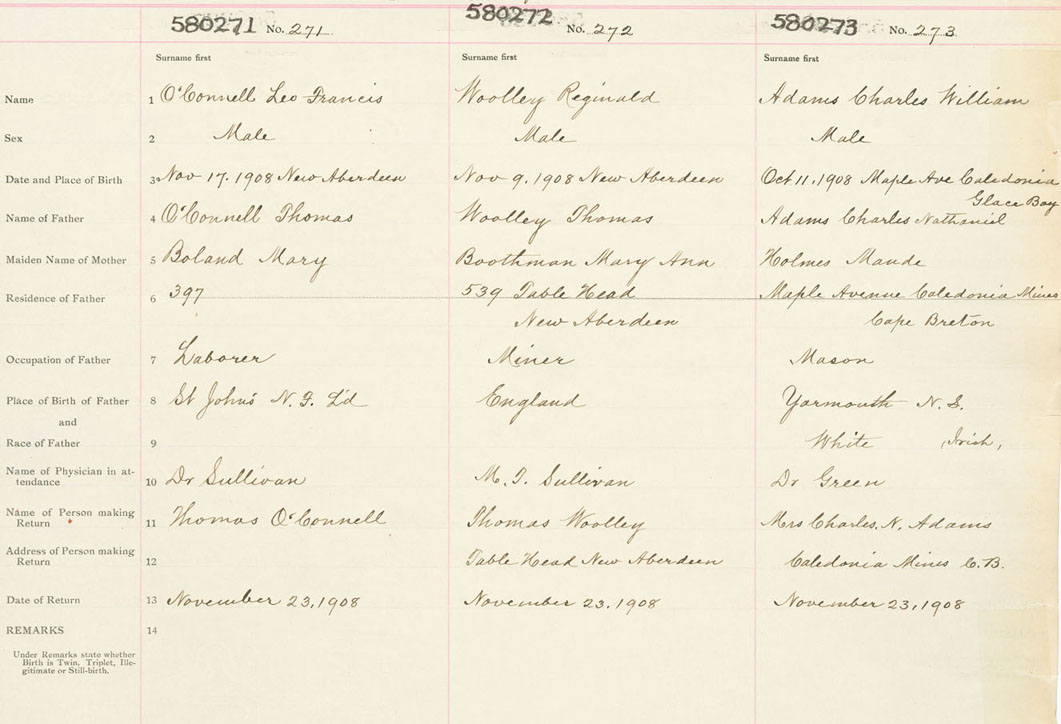 580271 No. 271 580272 No. 272 580273 No. 273
Surname first Surname first Surname first
Name 1 O'Connell Leo Francis Woolley Reginald Adams Charles William
Sex 2 Male Male Male
Date and Place of Birth 3 Nov 17. 1908 New Aberdeen Nov 9, 1908 New Aberdeen Oct 11, 1908 Maple Ave Caledonia
Glace Bay
Name of Father 4 O'Connell Thomas Woolley Thomas Adams Charles Nathaniel
Maiden Name of Mother 5 Boland Mary Boothman Mary Ann Holmes Maude
Residence of Father 6 397 539 Table Head Maple Avenue Caledonia Mines
New Aberdeen Cape Breton
Occupation of Father 7 Laborer Miner Mason
Place of Birth of Father 8 St John's N. F. L'd England Yarmouth N. S.
and
Race of Father 9 White Irish,
Name of Physician in at-
tendance 10 Dr Sullivan M. T. Sullivan Dr Green
Name of Person making
Return 11 Thomas O'Connell Thomas Woolley Mrs Charles. N. Adams
Address of Person making
Return 12 Table Head New Aberdeen Caledonia Mines C. B.
Date of Return 13 November 23, 1908 November 23, 1908 November 23, 1908
REMARKS 14
Under Remarks state whether
Birth is Twin, Triplet, Ille-
gitimate or Still-birth.